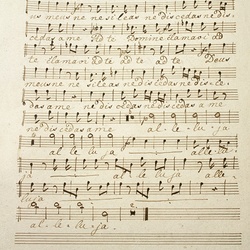 us meus ne ne sileas ne discedas ne dis-
cedas a me ad te Domine clamavi ad
te clamavi ad te ad te ad te Deus
meus ne ne sileas ne discedas ne disce-
das a me ne discedas ne discedas a me
ne discedas a me al-le-lu-ja
al le lu ja al le lu-
ja al le lu ja alle
lu ja
al-le-lu-ja